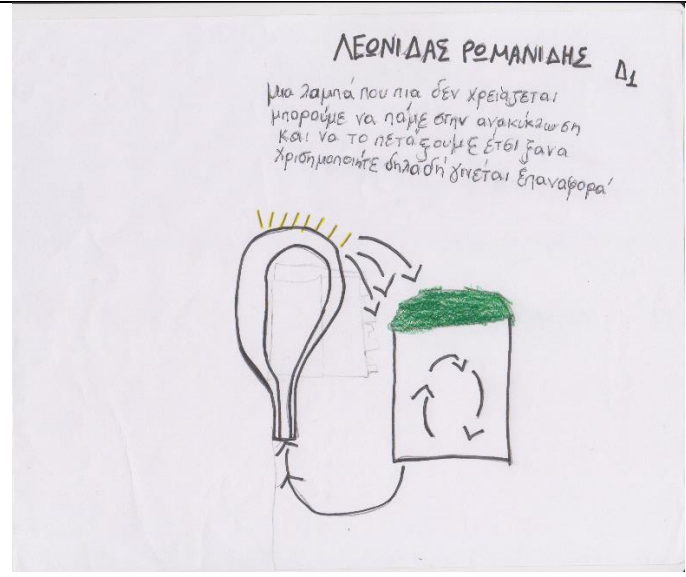 ΛΕΩΝΙΔΑΣ ΡΩΜΑΝΙΔΗΣ Δ1
μια λαμπά που πια δεν χρειάζεται
μπορούμε να πάμε στην ανακύκλωση
και να το πετάξουμε έτσι ξανα
χρισημοποιήτε δηλαδή γινέται επαναφορά